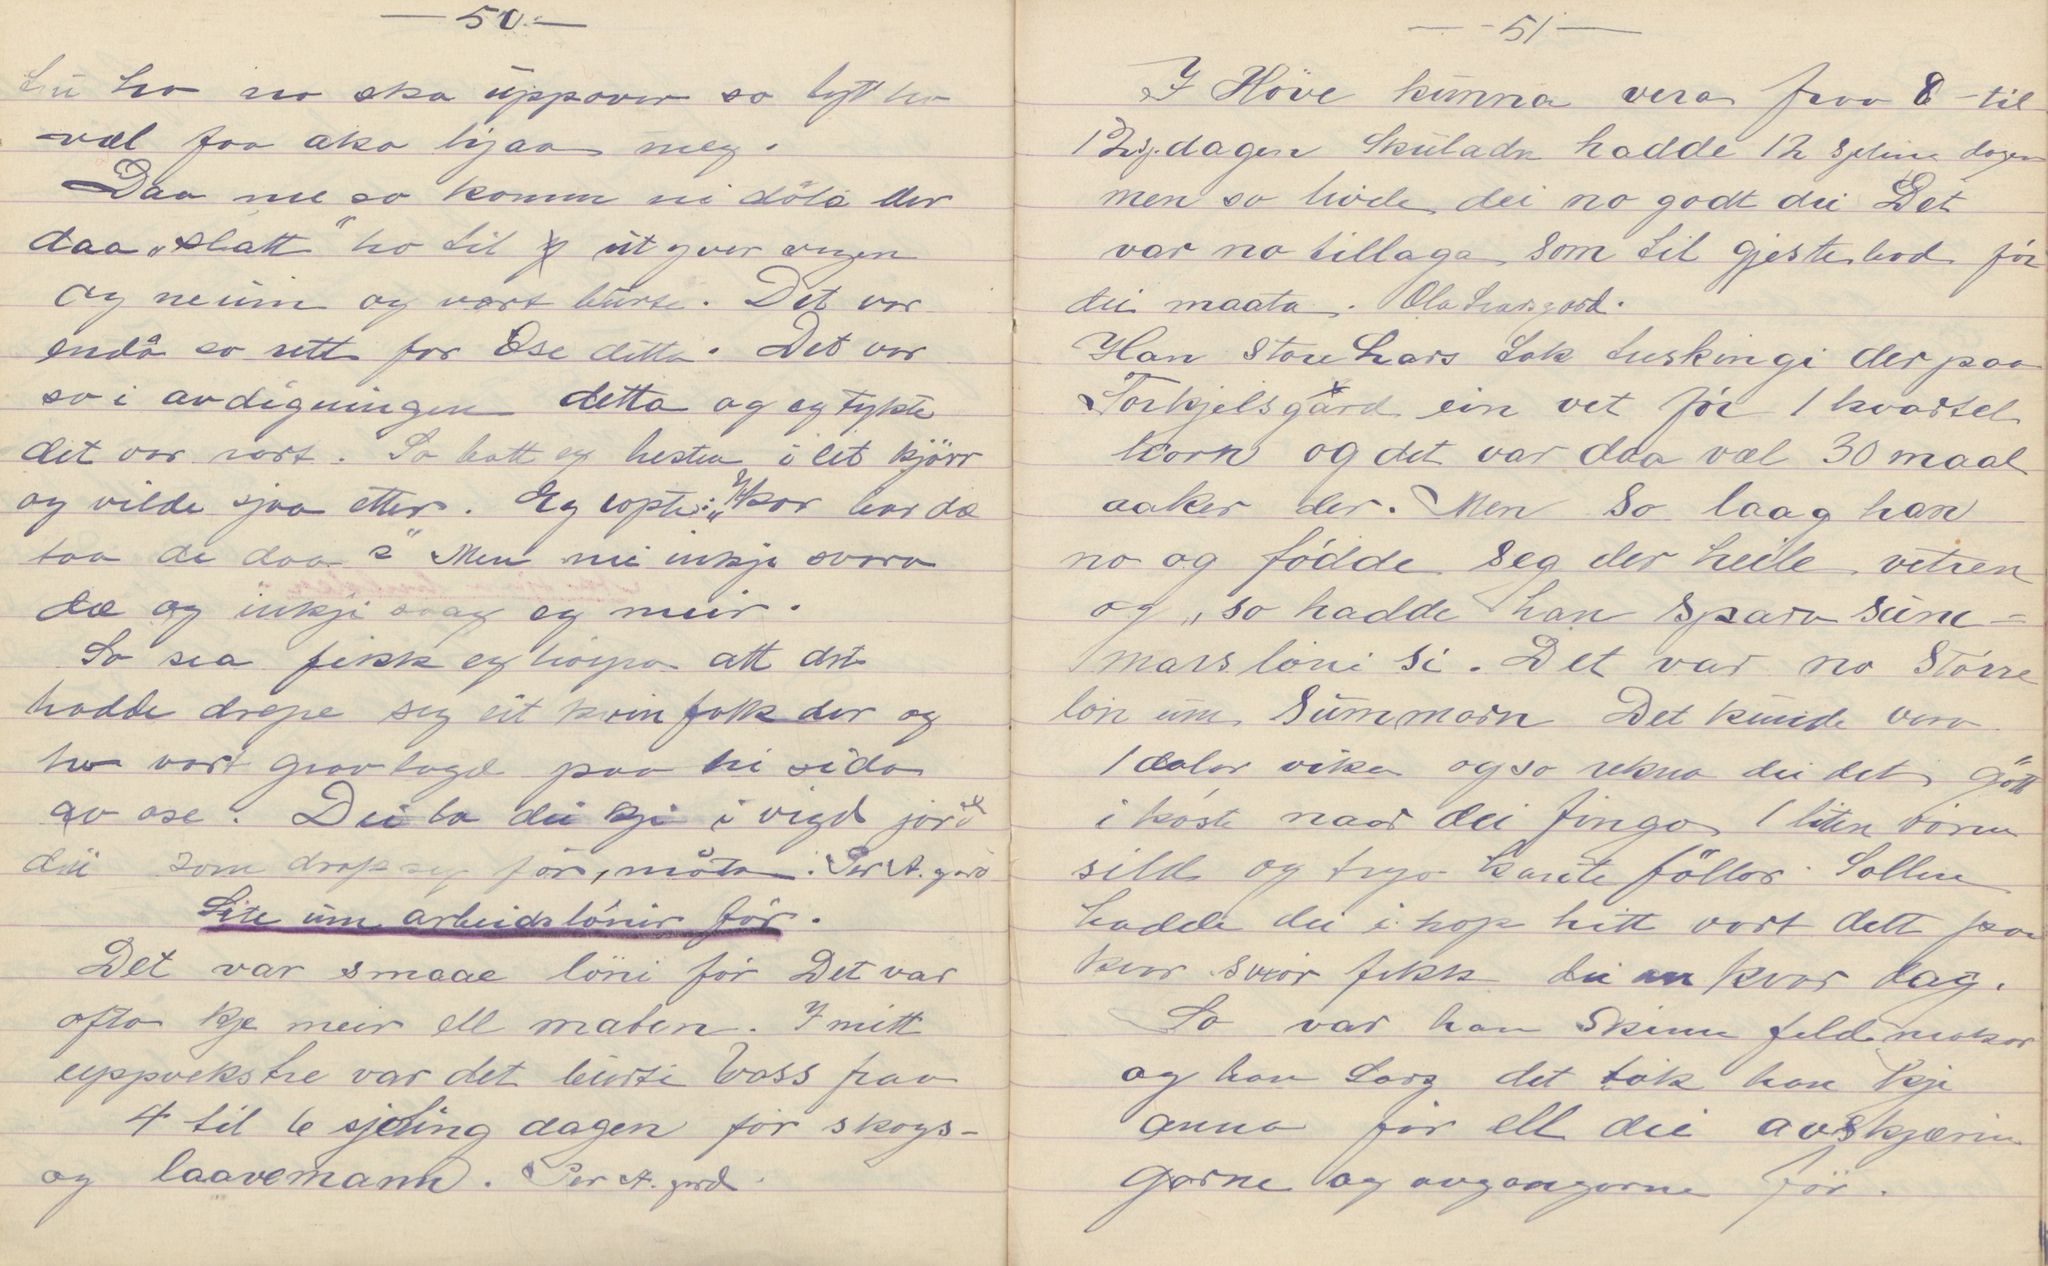 — 50. —
ho no ska uppover so lyt ho
væl faa aka hjaa meg.
Daa me so komm ni döla der
daa „slatt" ho til ut yver vegen
og neium og vart burte. Det var
endå so rett for Ose detta. Det var
so i avdigningen detta og eg tykte
det var rart. So batt eg hesten i eit kjörr
og vilde sjaa etter. Eg ropte: „Hkor har dæ
taa de daa?" Men nei inkje svara
dæ og inkji saag eg meir.
So sea fekk eg höyra att det
hadde drepe seg eit kvinfolk der og
ho vart gravlagd paa hi sida
av ose. Dei la dei kji i vigd jord
dei som drap seg för, måta. Per A. gard
Lite um arbeidslönir för.
Det var smaae löni för Det var
ofta kje meir ell maten. I mitt
uppvekstre var det burti Voss fraa
4 til 6 sjeling dagen för skogs-
og laavemann. Per A. gard.
— 51 —
I Höve kunna vera fraa 8 til
12 sj. dagen Skuladn hadde 12 sjeling dagen
men so livde dei no godt dei Det
var no tillaga som til gjestebod för
dei maata. Ola Larsgard.
Han Store Lars tok treskingi der paa
Torkjelsgård ein vet för 1 kvartel
korn og det var daa væl 30 maal
aaker der. Men so laag han
no og födde seg der heile vetren
og, so hadde han spara sum=
mars löni si. Det var no större
lön um summarn Det kunde vera
1 dalar vika og so rekna dei det gött
i koste naar dei fingo 1 liten
sild og tryo kante föllor. Sollen
hadde dei i hop hitt vart dett paa
kvor svor fekk dei an kvar dag.
So var han Skinnfeldmakar
og han Lars det tok han kje
anna för ell dei avskjærin
garne og avgangarne för.